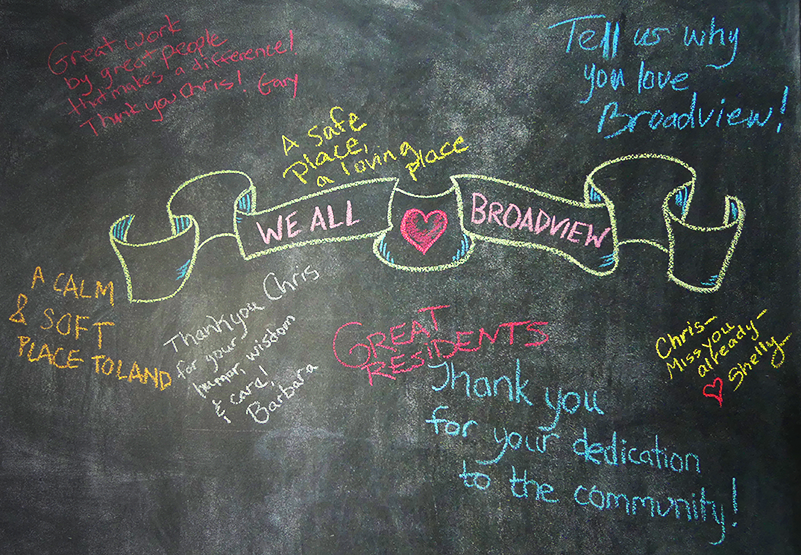 Great work
by great people
that makes a difference!
Thank you Chris! Gary
Tell us why
you love
Broadview!
A safe
place,
a loving place
WE ALL BROADVIEW
A CALM
& SOFT
PLACE TO LAND
Thank you Chris
for your
humor, wisdom
& care!
Barbara
GREAT
RESIDENTS
Thank you
for your dedication
to the community!
Chris-
Miss you
already-
Shelly-